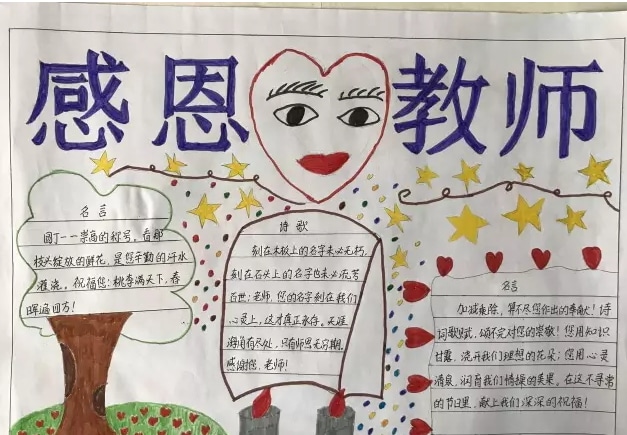 感恩教师
名言
园丁一一崇高的称号。看那
枝头绽放的鲜花,是您辛勤的汗水
灌浇。祝福您:桃李满天下,春
晖遍四方!
诗歌
刻在木板上的名字未必无朽,
刻在石头上的名字也未必流芳
百世;老师,您的名字刻在我们
心灵上,这才真正永存。天涯
海角有尽处,只有师恩无穷期。
感谢您,老师!
名言
加减乘除,算不尽您作出的奉献!诗
词歌赋,颂不完对您的崇敬!您用知识
甘露,浇开我们理想的花朵;您用心灵
清泉,润育我们情操的美果。在这不寻常
的节日里,献上我们深深的祝福!